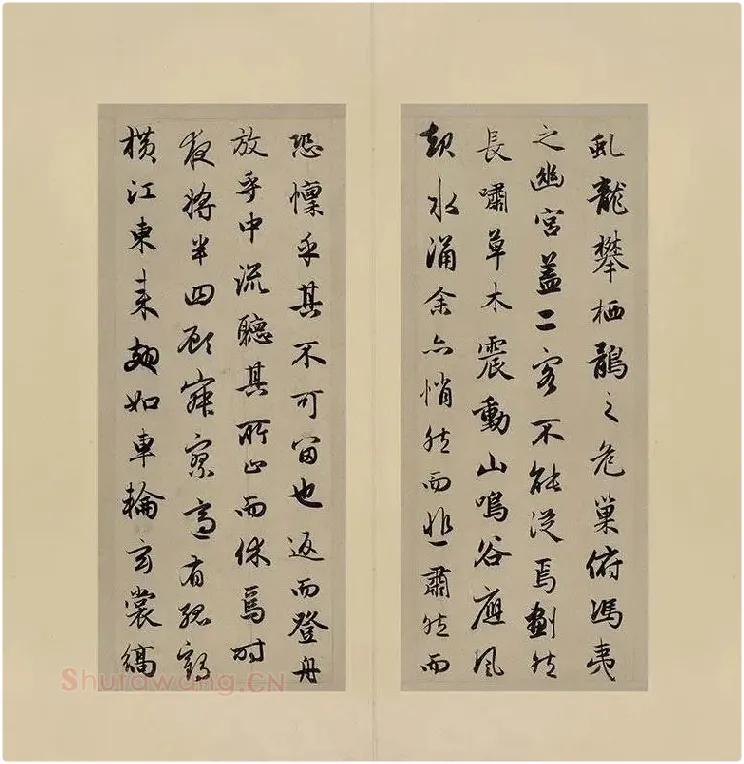 虬龍攀栖鶻之危巢俯馮夷
之幽宮蓋二客不能從焉劃然
長嘯草木震動山鳴谷應風
起水涌余亦悄然而悲肅然而
恐懍乎其不可留也返而登舟
放乎中流聽其所止而休焉時
夜將半四顧寂寥適有孤鶴
橫江東來翅如車輪玄裳縞
Shufawang.CN